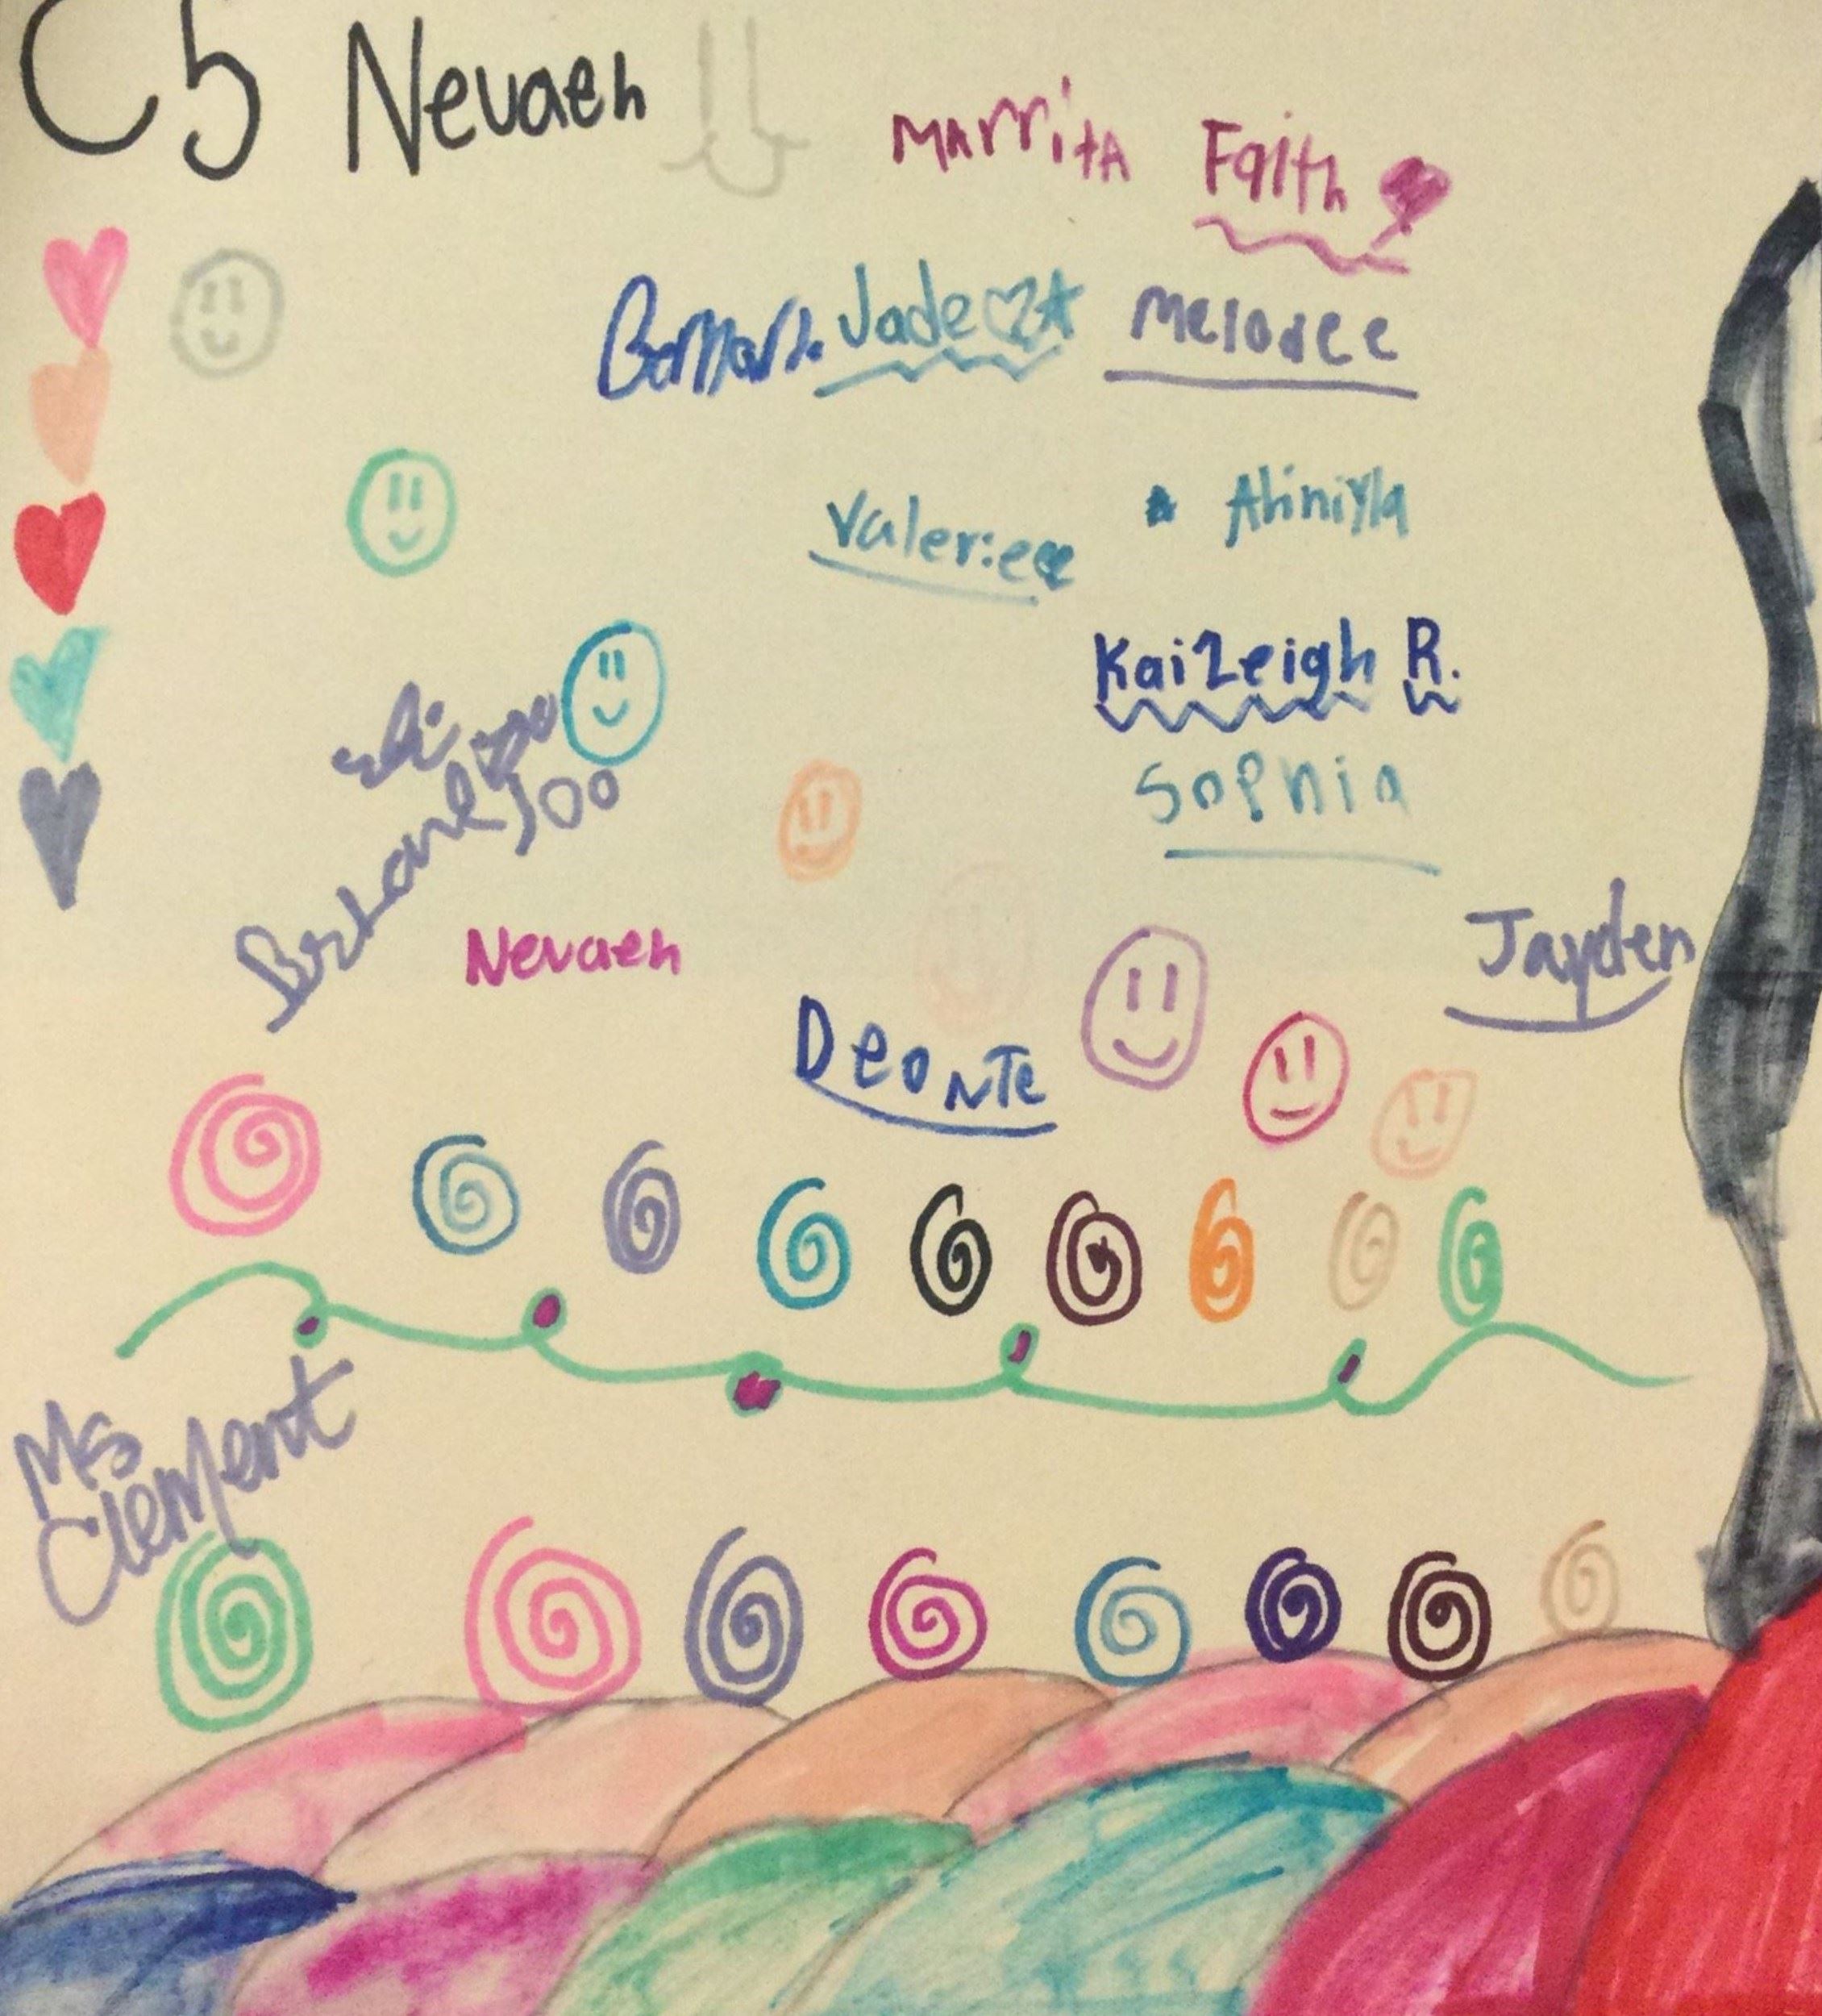 C5 Nevaeh
MArritA Faith
Jade Melodee
Valerieee Ahiniyla
Kaileigh R.
Sophia
Nevaeh
Jayden
DeoNTe
Ms
Clement